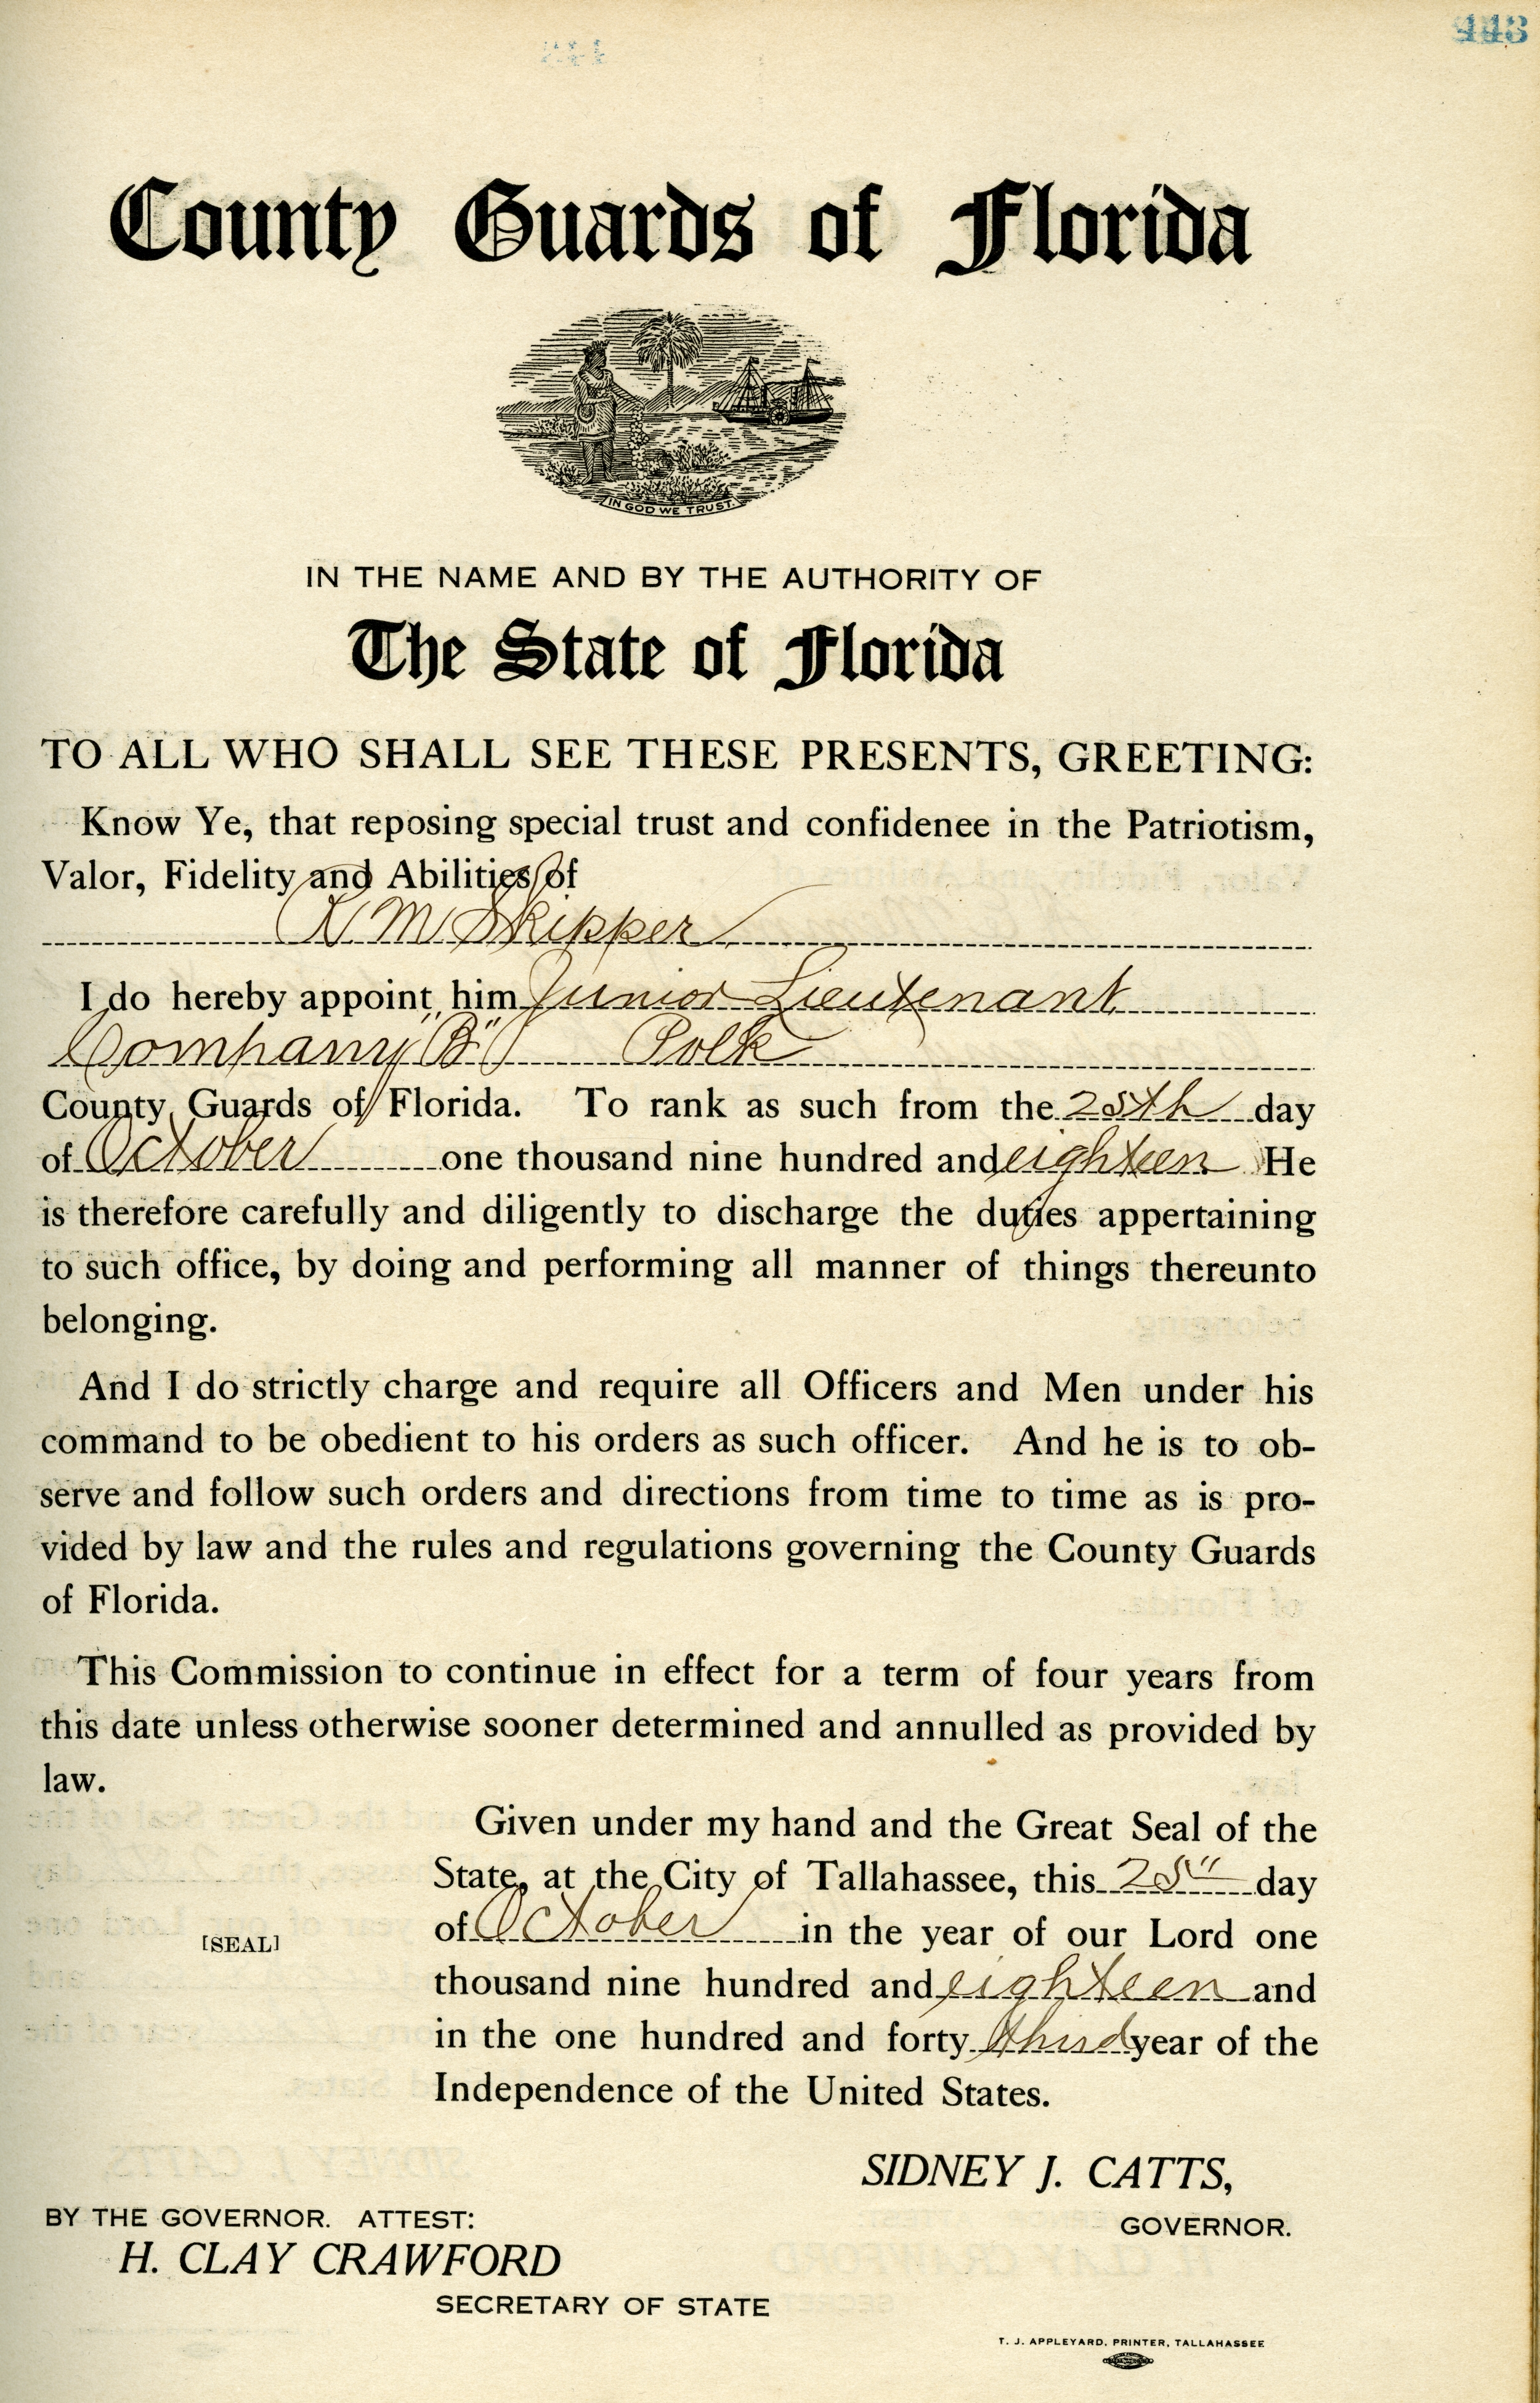 443
County Guards of Florida
IN GOD WE TRUST.
IN THE NAME AND BY THE AUTHORITY OF
The State of Florida
TO ALL WHO SHALL SEE THESE PRESENTS, GREETING:
Know Ye, that reposing special trust and confidenee in the Patriotism,
Valor, Fidelity and Abilities of
M Skipper
I do hereby appoint him Junior Lieutenant
Company "B" Polk
County Guards of Florida. To rank as such from the 25th day
of October one thousand nine hundred and eighteen He
is therefore carefully and diligently to discharge the duties appertaining
to such office, by doing and performing all manner of things thereunto
belonging.
And I do strictly charge and require all Officers and Men under his
command to be obedient to his orders as such officer. And he is to ob-
serve and follow such orders and directions from time to time as is pro-
vided by law and the rules and regulations governing the County Guards
of Florida.
This Commission to continue in effect for a term of four years from
this date unless otherwise sooner determined and annulled as provided by
law.
Given under my hand and the Great Seal of the
State, at the City of Tallahassee, this 25" day
of October in the year of our Lord one
[SEAL]
thousand nine hundred and eighteen and
in the one hundred and forty third year of the
Independence of the United States.
SIDNEY J. CATTS,
GOVERNOR.
BY THE GOVERNOR. ATTEST:
H. CLAY CRAWFORD
SECRETARY OF STATE
T. J. APPLEYARD, PRINTER, TALLAHASSEE